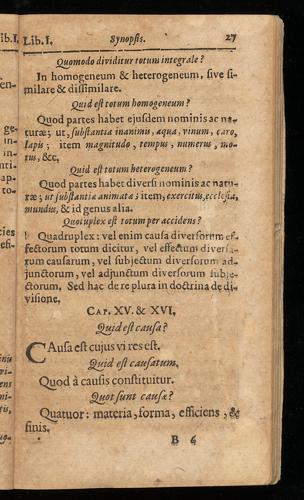 Lib. I. Synopsis. 27
Quomodo dividitur totum integrale?
In homogeneum & heterogeneum, sive si-
milare & dissimilare.
Quid est totum homogeneum?
Quod partes habet ejusdem nominis ac na-
turæ; ut, substantia inanimis, aqua, vinum, caro,
lapis; item magnitudo, tempus, numerus, mo-
tus, &c,
Quid est totum heterogeneum?
Quod partes habet diversi nominis ac natu-
ræ; ut substantia animata; item, exercitus, ecclesia,
mundus, & id genus alia.
Quotuplex est totum per accidens?
Quadruplex: vel enim causa diversorum ef-
fectorum totum dicitur, vel effectum diversa-
rum causarum, vel subjectum diversorum ad-
junctorum, vel adjunctum diversorum subje-
ctorum. Sed hac de re plura in doctrina de di-
visione.
CAP. XV. & XVI.
Quid est causa?
CAusa est cujus vi res est.
Quid est causatum.
Quod à causis constituitur.
Quot sunt causæ?
Quatuor: materia, forma, efficiens, &
finis.
B 6